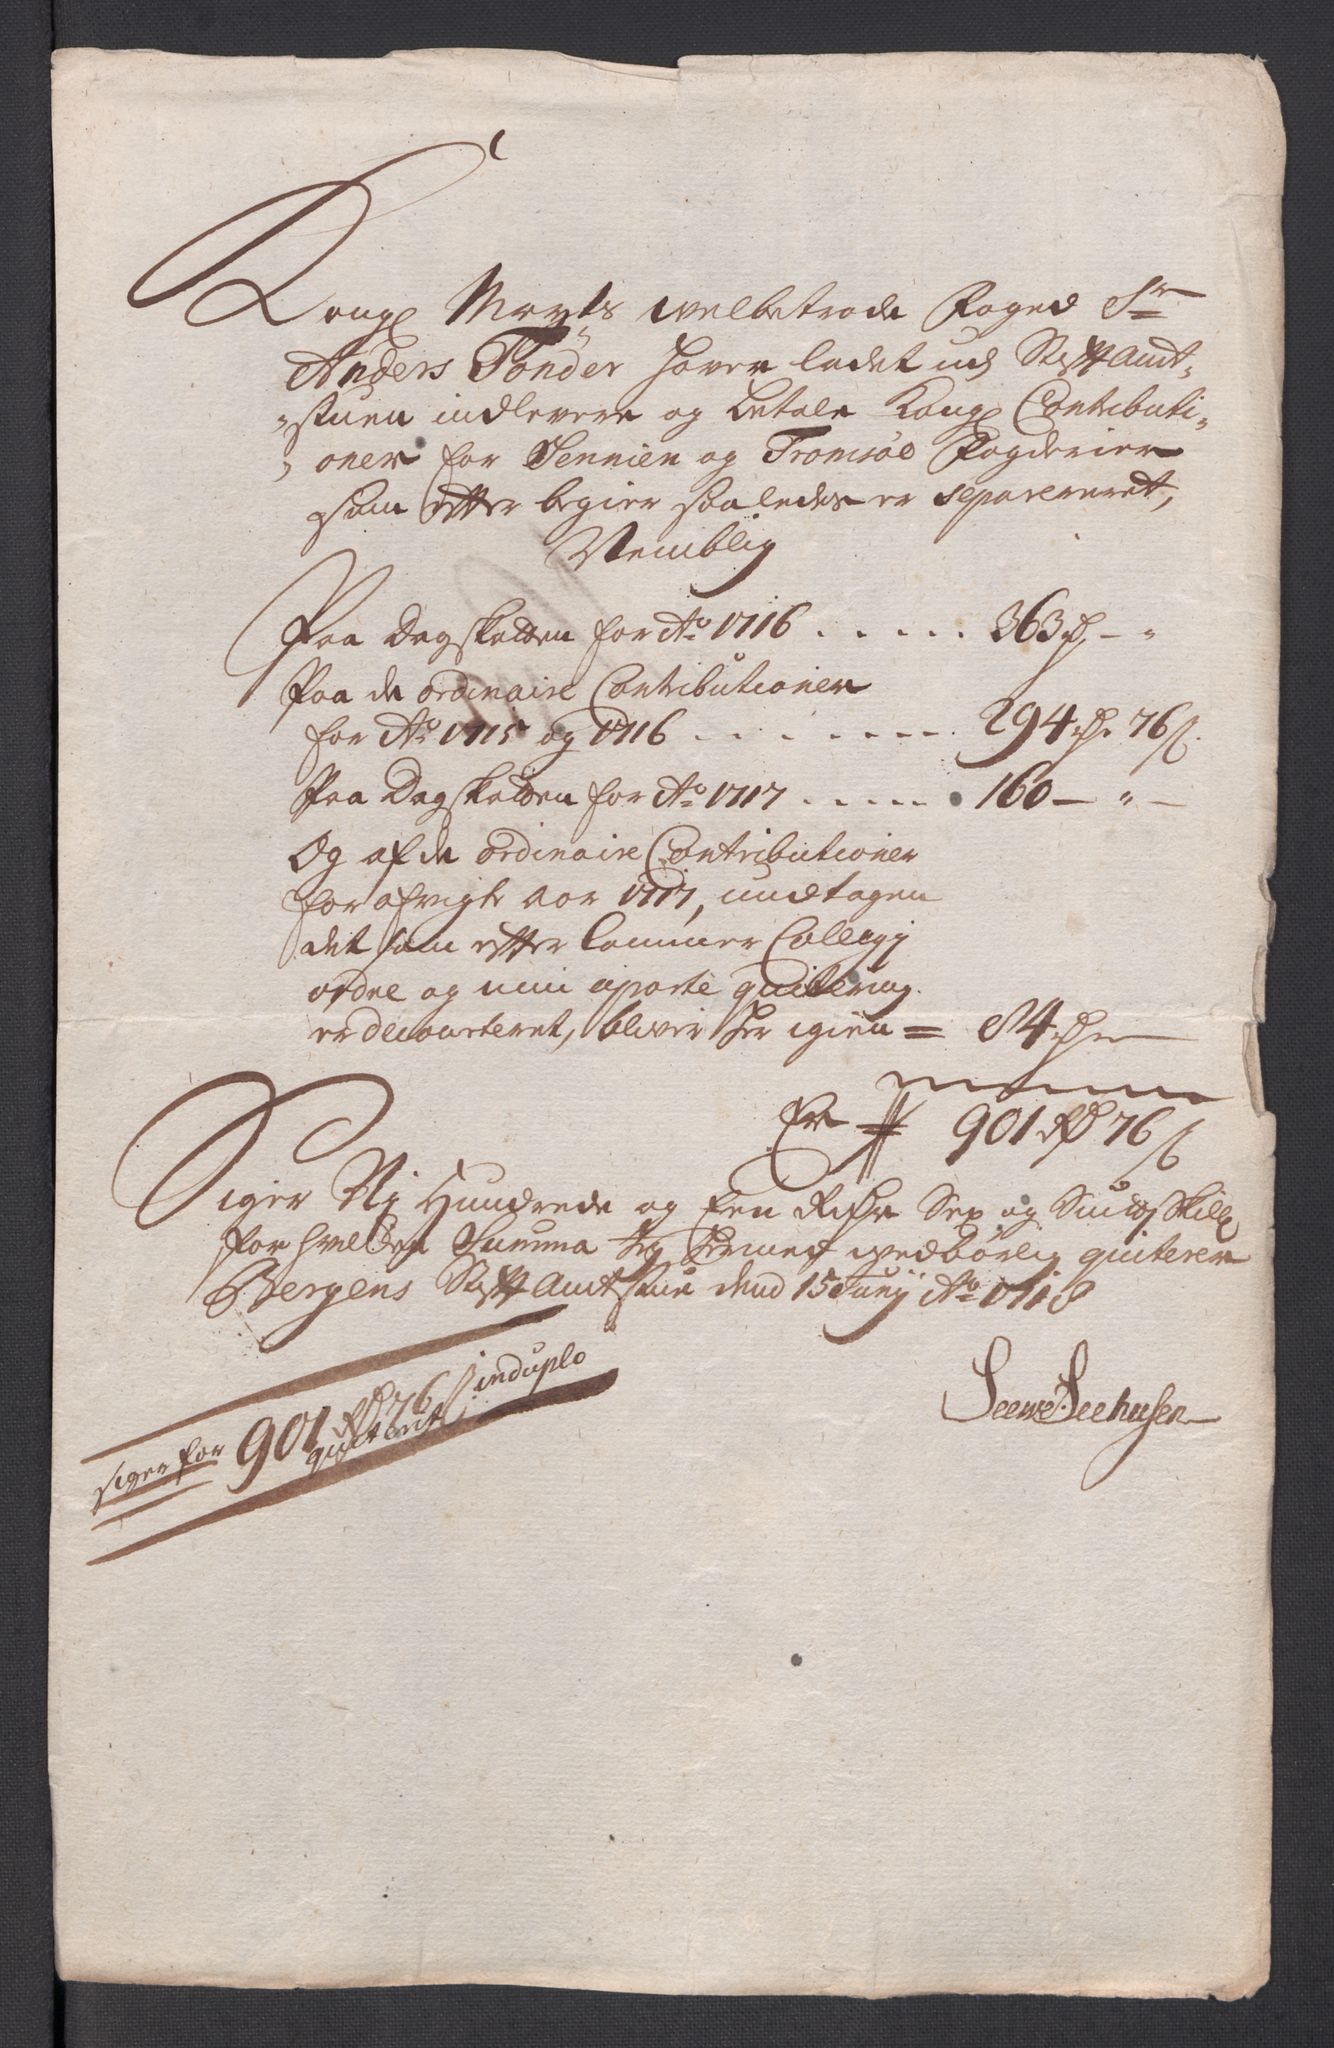 Kongl Mayts welbetrode Foged Sr
Anders Tønder haver ladet ud Stifft Amt-
stuen indlevere og betale Kongl Contributi-
oner for Sennien og Tromsøe Fogderier
som effter begier saaledes er separereret,
Nemblig
Paa Dagskatten for Ao 1716 . . . . . 363 rd – "
Paa de ordinaire Contributioner
for Ao 1715 og 1716 . . . . . . . . 294 rd. 76 s.
Paa Dagskatten for Ao 1717 . . . . . 160 – " –
Og af de ordinaire Contributioner
for afvigte aar 1717, undtagen
det som effter Cammer Collegij
ordre og min aparte quitering
er decourteret, bliver her igien = 84 rd
Er 901 Rd 76 s
Siger Nj Hundrede og Een Rixdr Sex og Siufvtj Skill
for hvilden Summa ieg hermed wedbørlig quiterer
Bergens Stifft Amtstue dend 15 Junij Ao 1718
Seewe Seehusen
siger for 901 Rd 76 s induplo
quiterit